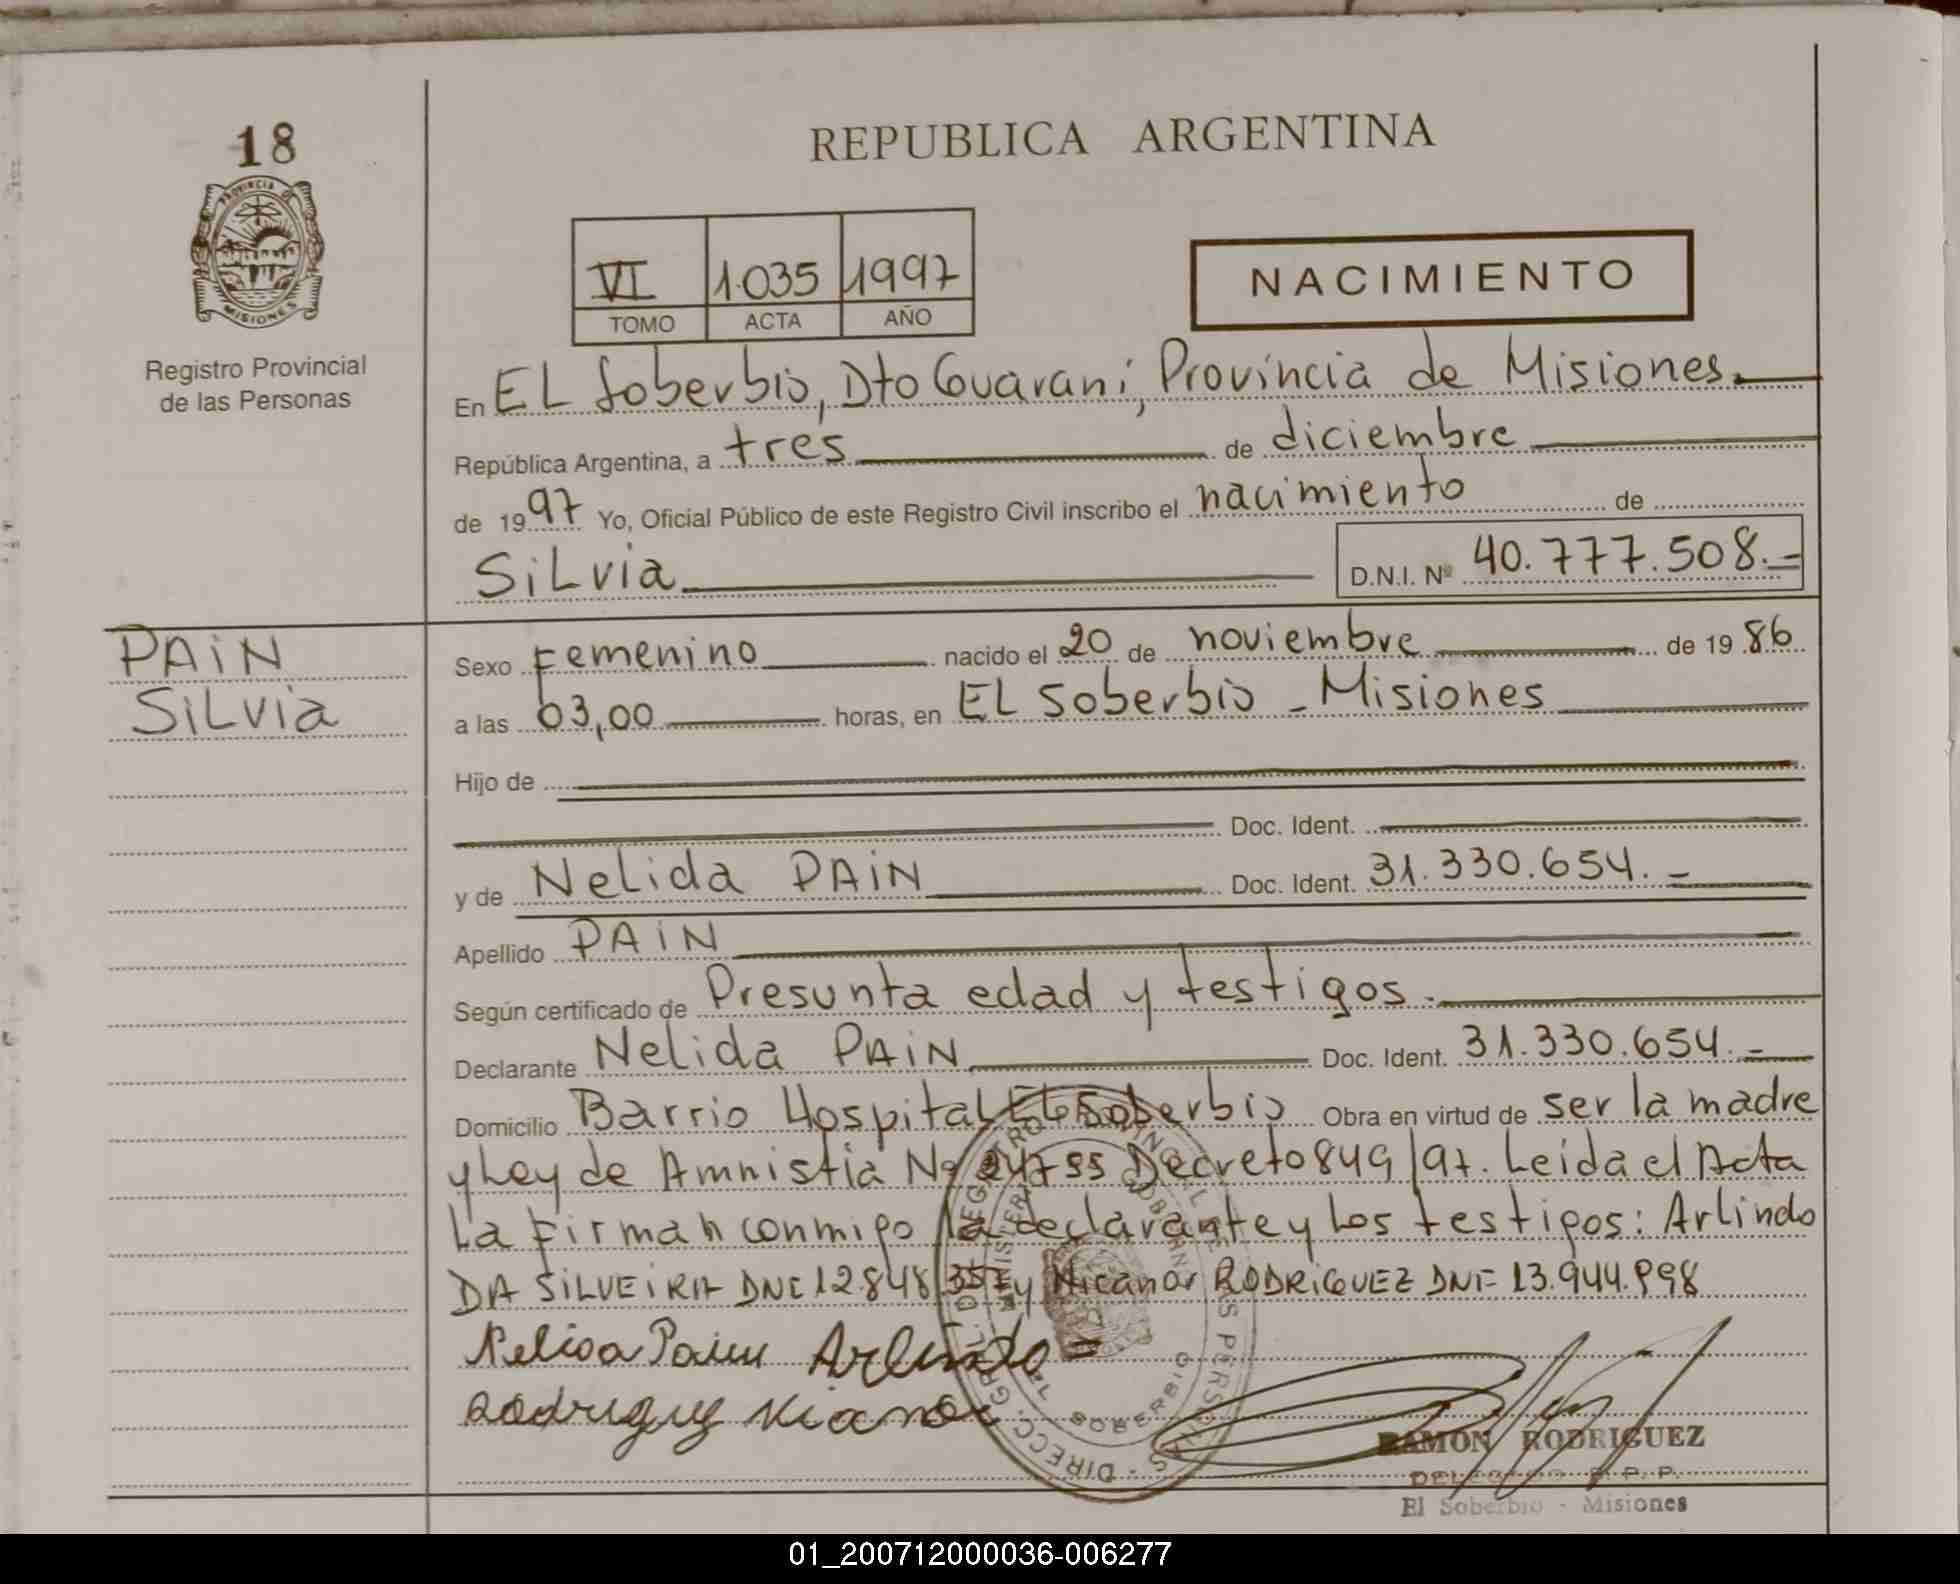 18
PROVINCIA DE
MISIONES
Registro Provincial
de las Personas
REPUBLICA ARGENTINA
VI 1.035 1997
TOMO ACTA AÑO
NACIMIENTO
En EL Soberbio, Dto Guaraní, Provincia de Misiones.
República Argentina, a tres de diciembre
de 1997 Yo, Oficial Público de este Registro Civil inscribo el nacimiento de
SiLvia D.N.I. Nº 40.777.508.-
PAiN
SiLvia
Sexo Femenino nacido el 20 de noviembre de 1986
a las 03,00 horas, en EL Soberbio - Misiones
Hijo de
Doc. Ident.
y de Nelida PAiN Doc. Ident. 31.330.654.-
Apellido PAiN
Según certificado de Presunta edad y testigos.
Declarante Nelida PAiN Doc. Ident. 31.330.654.-
Domicilio Barrio Hospital EL Soberbio Obra en virtud de ser la madre
y Ley de Amnistia Nº 24755 Decreto 849/97. Leida el Acta
La firman conmigo la declarante y los testigos: Arlindo
DA SiLVEiRA DNI 12.848.357 y Nicanor RODRiGUEZ DNI 13.944.998
Nelida Pain Arlindo
Rodriguez Nicanor
RAMON RODRIGUEZ
DELEGADO R. P. P.
El Soberbio - Misiones
01_200712000036-006277